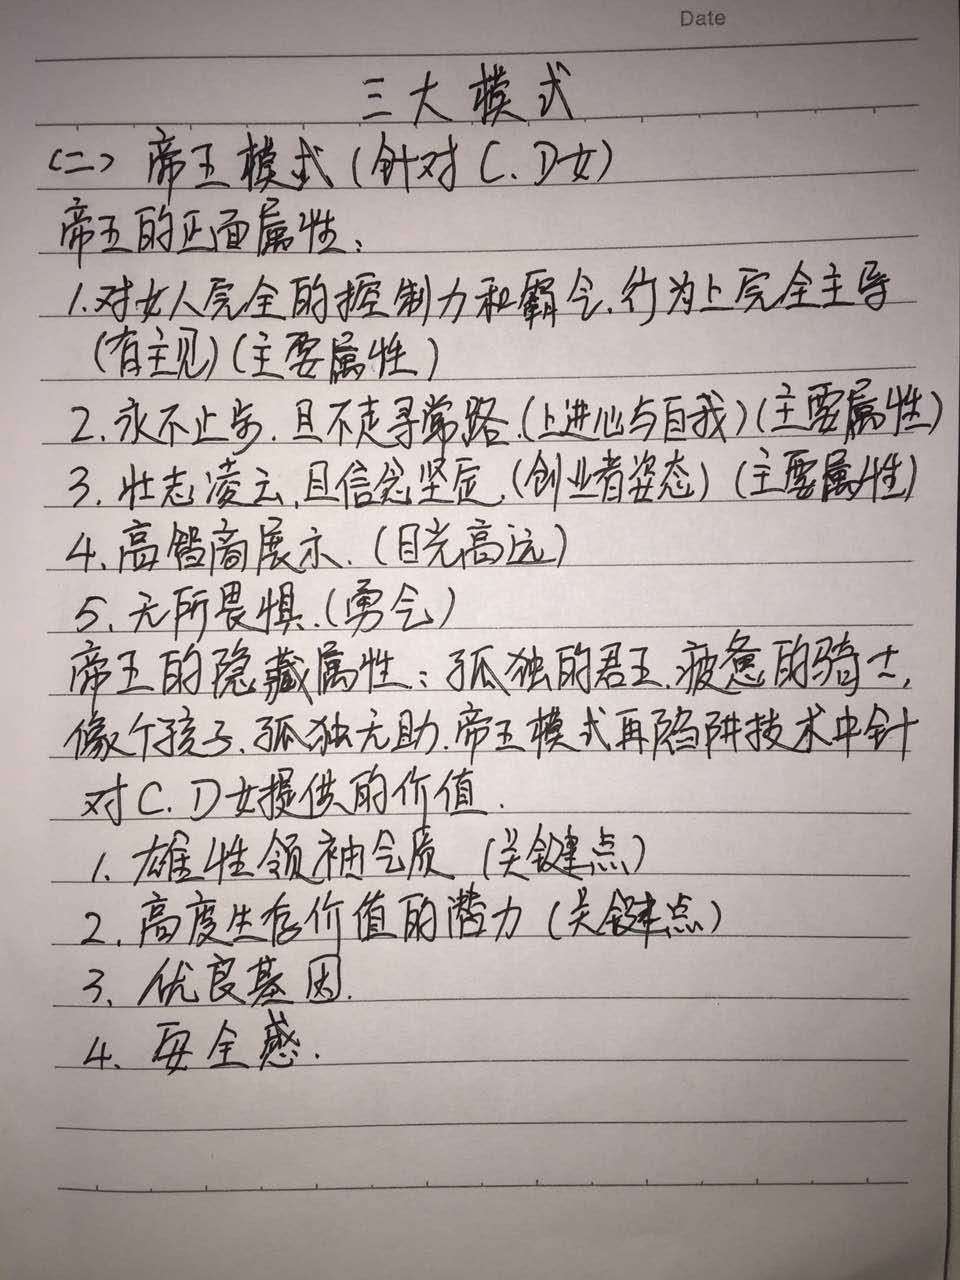 Date
三大模式
(二) 帝王模式(针对C、D女)
帝王的正面属性:
1.对女人完全的控制力和霸气.行为上完全主导
(有主见)(主要属性)
2.永不止步.且不走寻常路.(上进心与自我)(主要属性)
3.壮志凌云.且信念坚定.(创业者姿态)(主要属性)
4.高智商展示.(目光高远)
5.无所畏惧.(勇气)
帝王的隐藏属性:孤独的君王.疲惫的骑士.
像个孩子.孤独无助.帝王模式再陷阱技术中针
对C、D女提供的价值.
1.雄性领袖气质(关键点)
2.高度生存价值的潜力(关键点)
3.优良基因.
4.安全感.